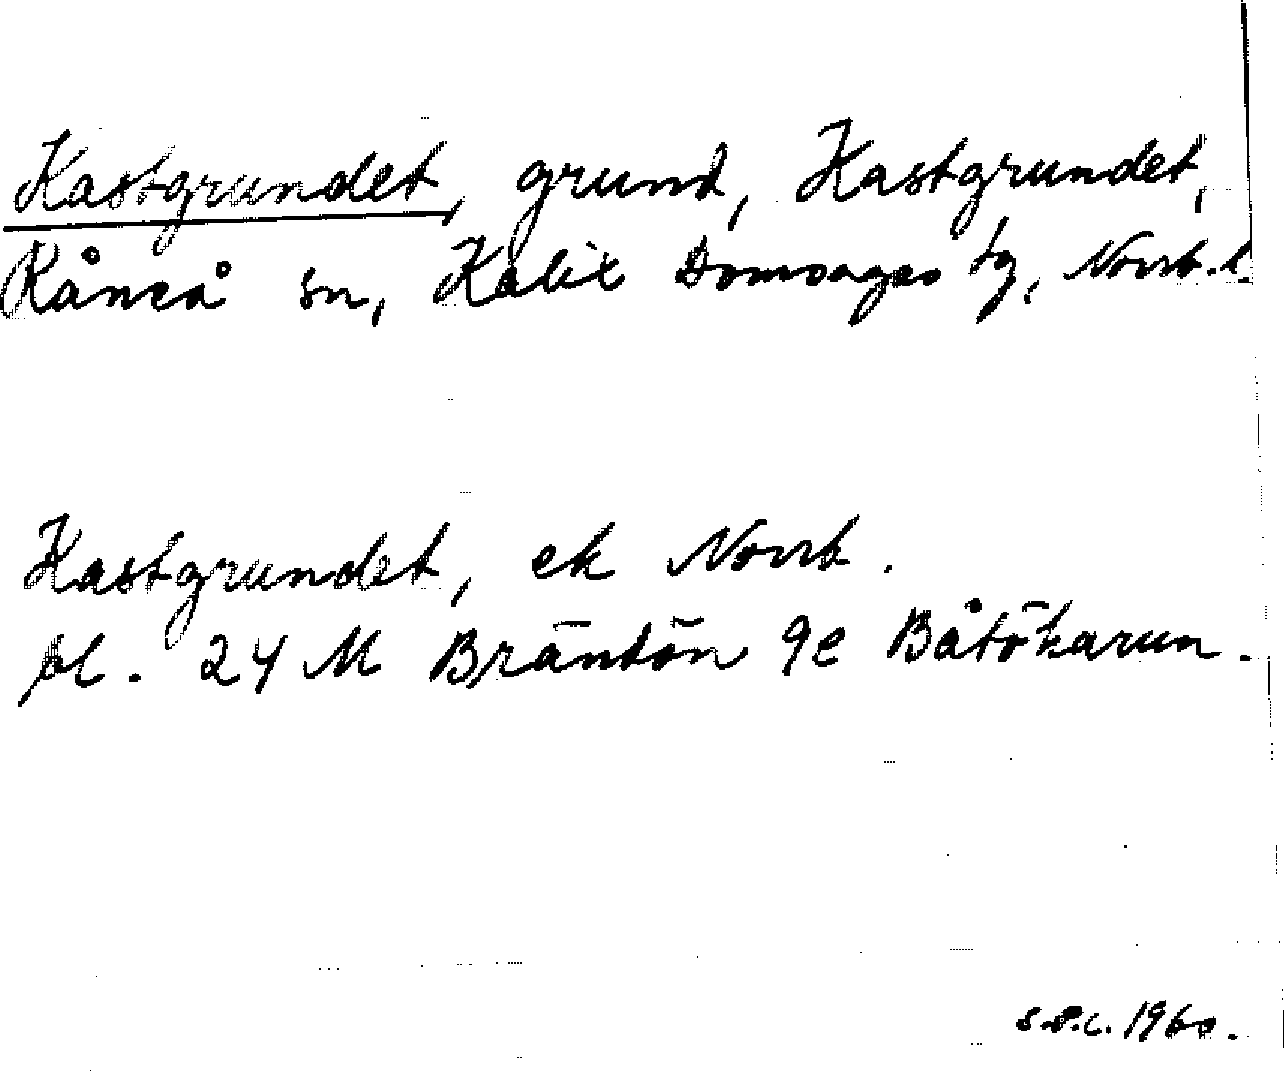 Kastgrundet, grund, Kastgrundet,
Råneå sn, Kalix Domsagas tg, Norrb. l.
Kastgrundet, ek Norrb.
bl. 24 M Bräntön 9e Båtökarun.
S.P.C. 1960.